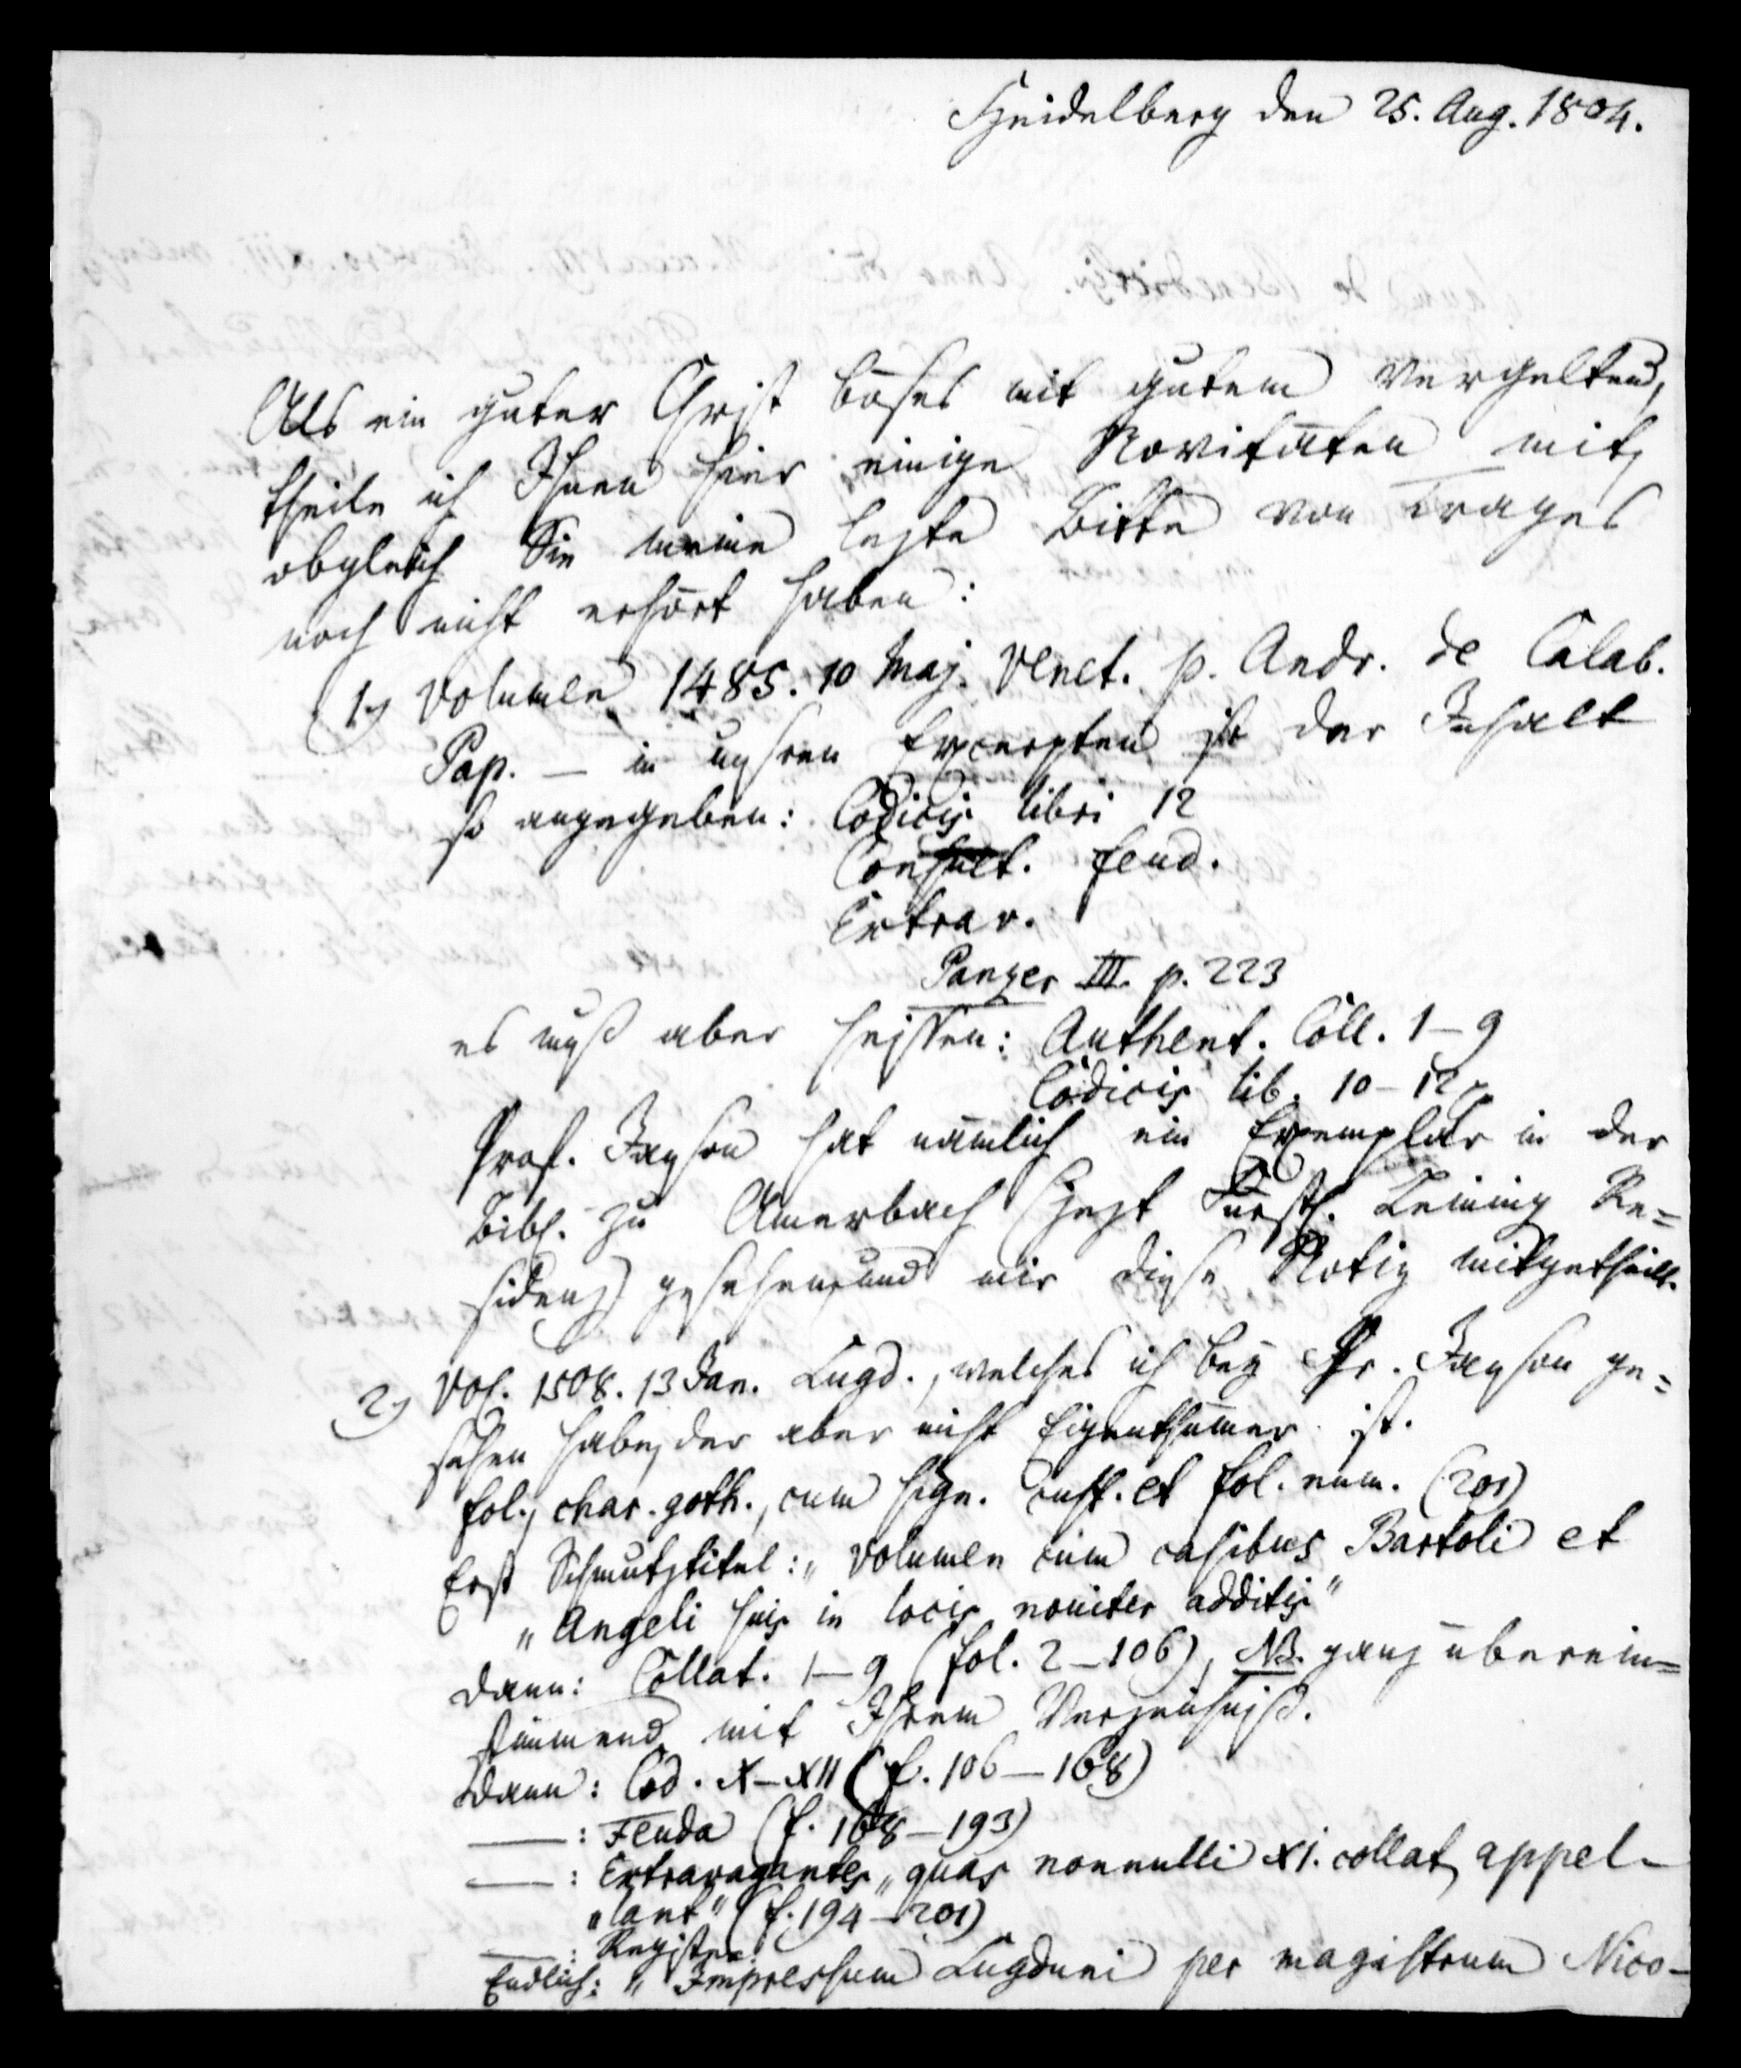 Heidelberg den 25. Aug. 1804.
Als ein guter Christ böses mit gutem vergeltend,
theile ich Ihnen hier einige Novitäten mit,
obgleich Sie meine lezte Bitte von Trages
noch nicht erhört haben:
1) Volumen 1485. 10 Maj. Venet. p. Andr. de Calab.
Pap. — in unsren Excerpten ist der Inhalt
so angegeben: Codicis libri 12
Consuet. feud.
Extrav.
Panzer III. p. 223
es muß aber heissen: Authent. Coll. 1—9
Codicis lib. 10—12.
Prof. Janson hat nämlich ein Exemplar in der
Bibl. zu Amerbach (jezt Fürstl. Leining Re=
sidenz) gesehen, und mir diese Notiz mitgetheilt.
2) Vol. 1508. 13 Jan. Lugd., welches ich bey Pr. Janson ge=
sehen habe, der aber nicht Eigenthümer ist.
fol., char. goth., cum sign. cust. et fol. num. (201)
Erst Schmutztitel: „Volumen cum casibus Bartoli et
„Angeli suis in locis noviter additis"
dann: Collat. 1—9 (fol. 2—106), NB. ganz überein=
stimmend mit Ihrem Verzeichniß.
dann: Cod. X—XII (f. 106—168)
—: Feuda (f. 168—193)
—: Extravagantes „quas nonnulli XI. collat. appel-
„lant" (f. 194—201)
—: Register.
Endlich: „Impressum Lugduni per magistrum Nico-